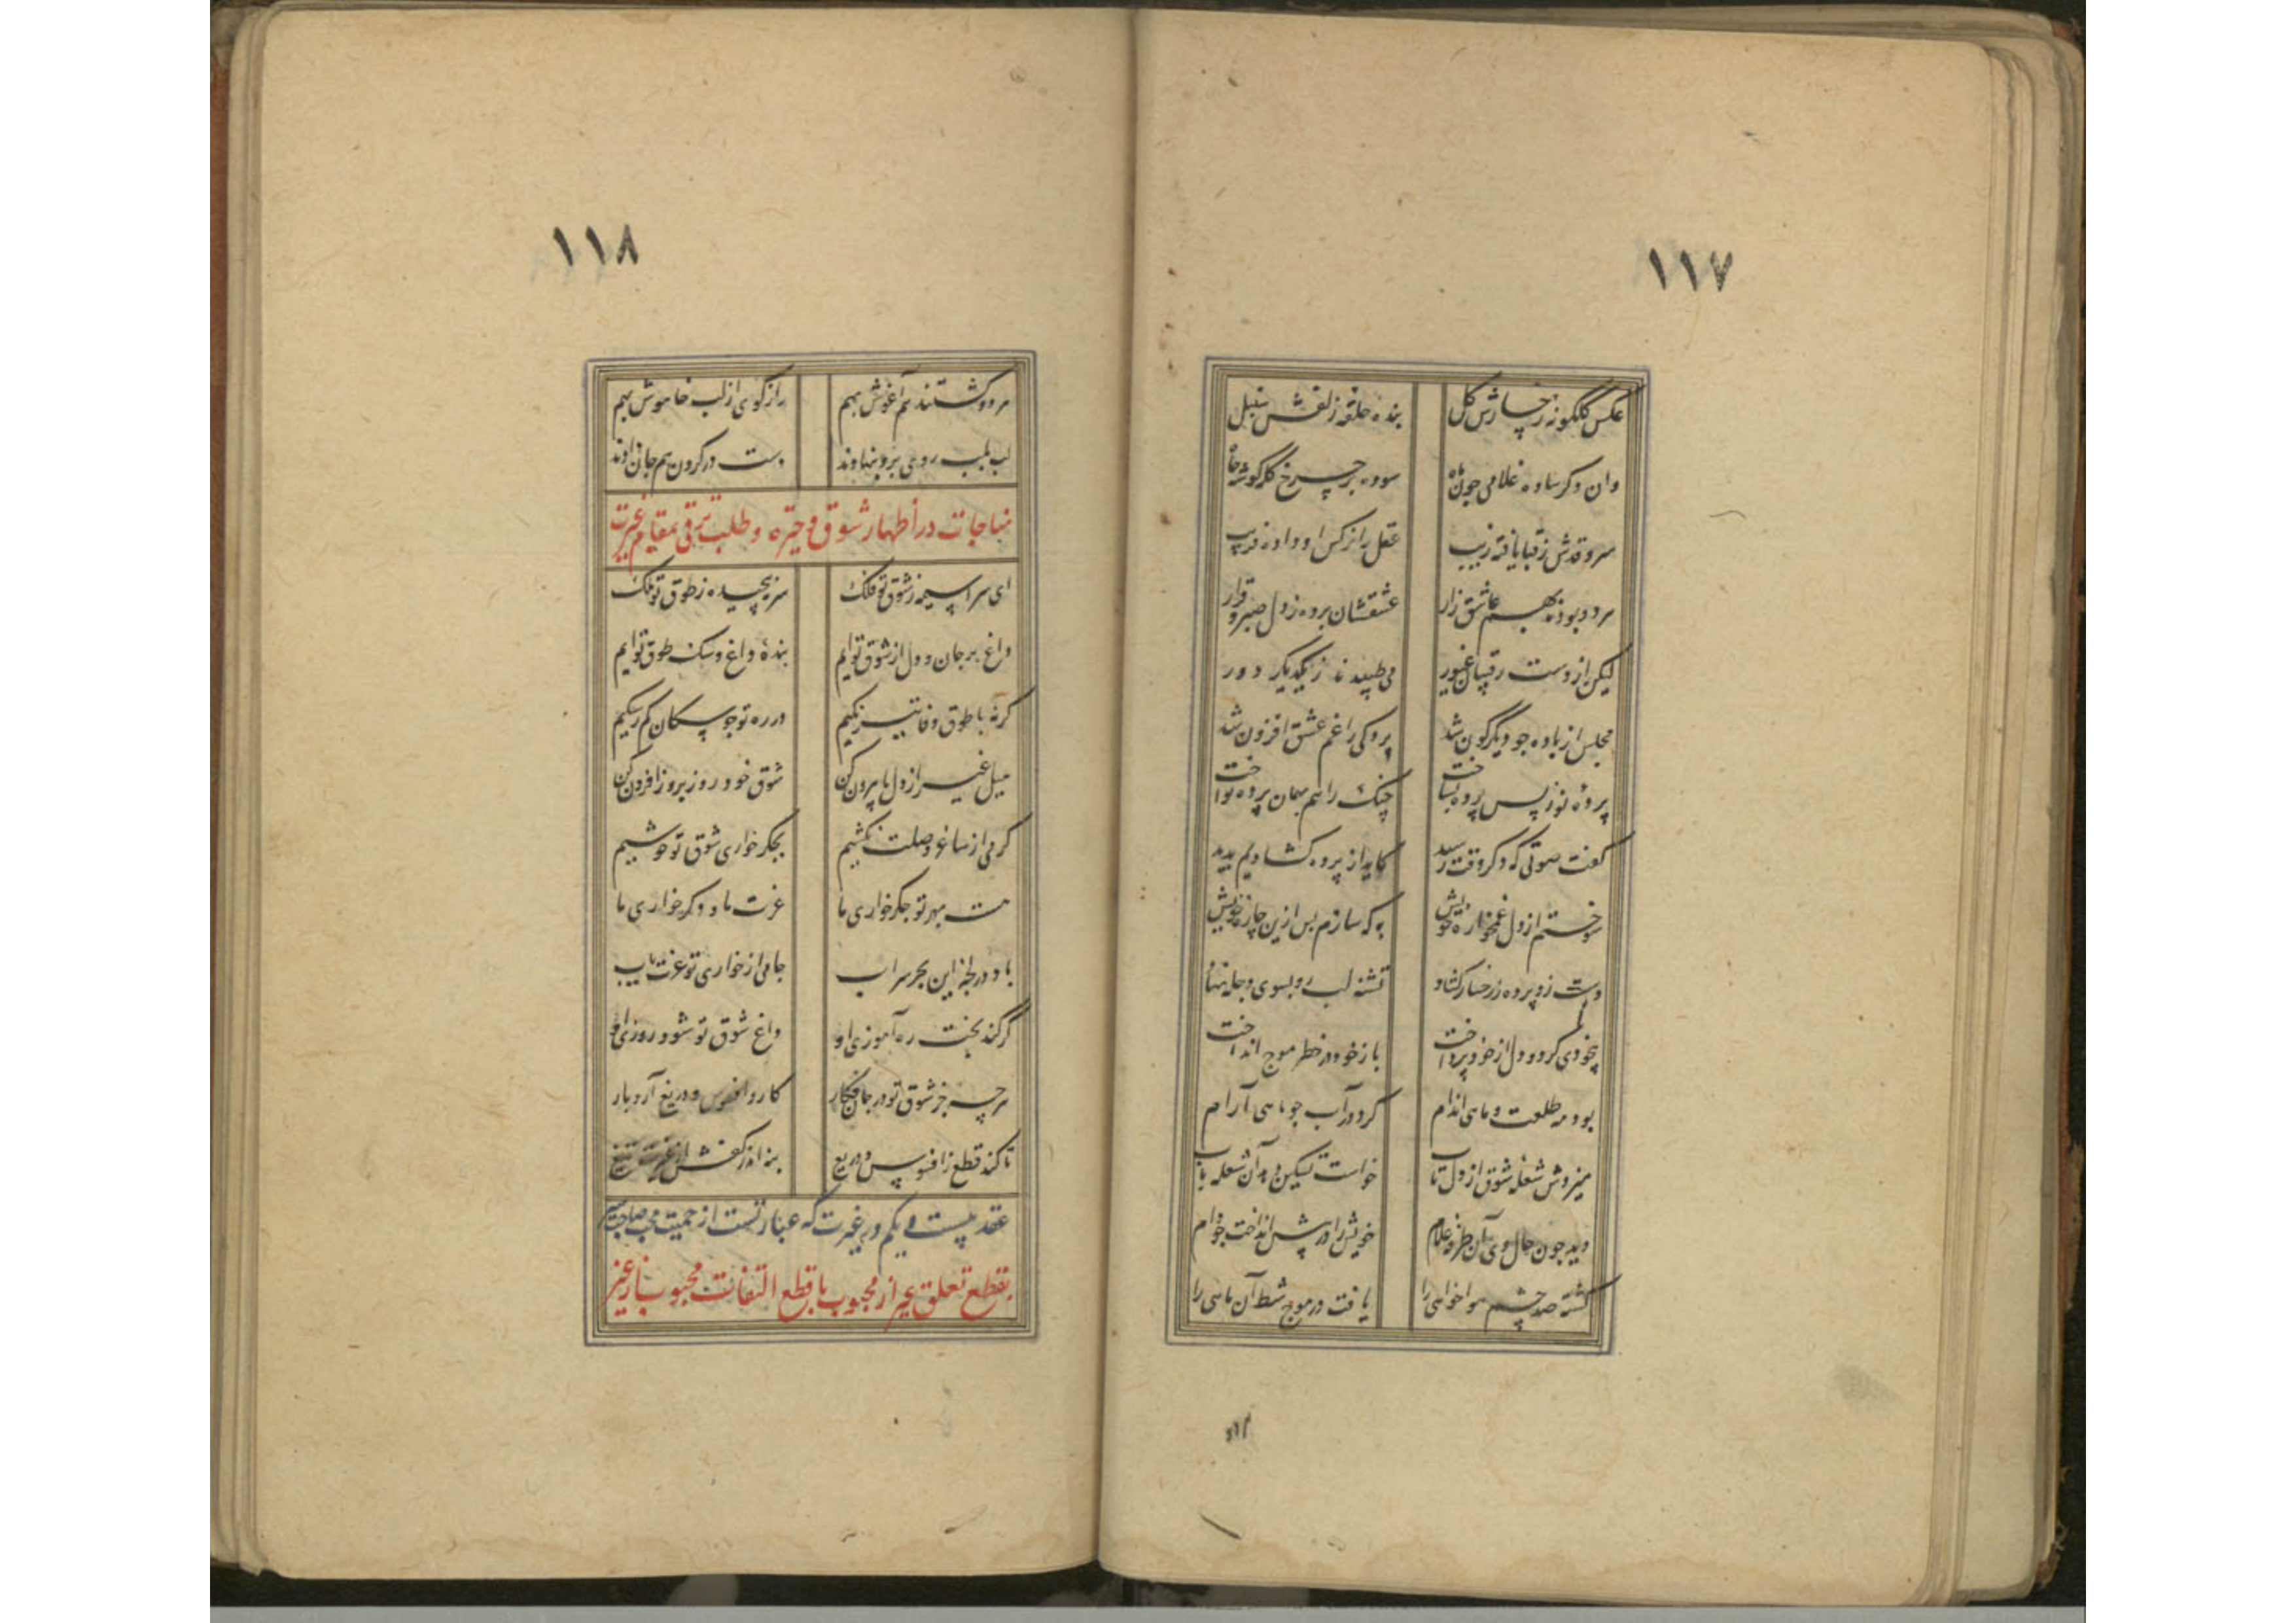 ١١٧
عکس گلگونه رخسارش گل بنده حلقه زلفش سنبل
وان دکر ساده غلامی چون ماه سوده بر چرخ کله گوشه جاه
سرو قدش ز قبا یافته زیب عقل را نرکس او داده فریب
هر دو بودند بهم عاشق زار عشقشان برده ز دل صبر و قرار
لیکن از دست رقیبان غیور می طپیدند ز یکدیگر دور
مجلس از باده چو دیگرگون شد پردگی را غم عشق افزون شد
پرده نو ز پس پرده بساخت چنک را هم بهمان پرده نواخت
گفت صوتی که دکر وقت رسید کاید از پرده کشادیم پدید
سوختم از دل غمخواره خویش به که سازم پس ازین چاره خویش
دست زد پرده ز رخسار کشاد تشنه لب رو بسوی دجله نهاد
بیخودی کرد و دل از خود پرداخت باز خود در خطر موج انداخت
بود مه طلعت و ماهی اندام کرد در آب چو ماهی آرام
میزدش شعله شوق از دل تاب خواست تسکین دهد آن شعله بآب
دید چون حال وی آن طرفه غلام خویش را در پیش انداخت چو دام
کشته صد چشم هواخواهی را یافت در موج شط آن ماهی را
١١٨
هر دو کشتند هم آغوش بهم راز گوی از لب خاموش بهم
لب بلب روی برو بنهادند دست در کردن هم جان دادند
مناجات در اظهار شوق و حیرة و طلب ترقی بمقام غیرت
ای سراسیمه ز شوق تو فلک سر نپیچیده ز طوق تو ملک
داغ بر جان و دل از شوق توایم بنده داغ و سک طوق توایم
کرنه با طوق وفا تیز تکیم در ره تو چو سکان کم ز سکیم
میل غیر از دل ما بیرون کن شوق خود روز بروز افزون کن
کر می از ساغر وصلت نکشیم بجکر خواری شوق تو خوشیم
هست مهر تو جکر خواری ما عزت ما و دکر خواری ما
باد در لجه این بحر سراب جامی از خواری تو عزت یاب
گر کند بخت ره آموزی او داغ شوق تو شود روزی او
هرچه جز شوق تو در جان فکار کارد افسوس و دریغ آرد بار
تا کند قطع ز افسوس و دریغ بنه اندر کفش از غیرت تیغ
عقد بیست و یکم در غیرت که عبارتست از حمیت محب صاحب سیر
بقطع تعلق غیر از محبوب یا قطع التفات محبوب از غیر